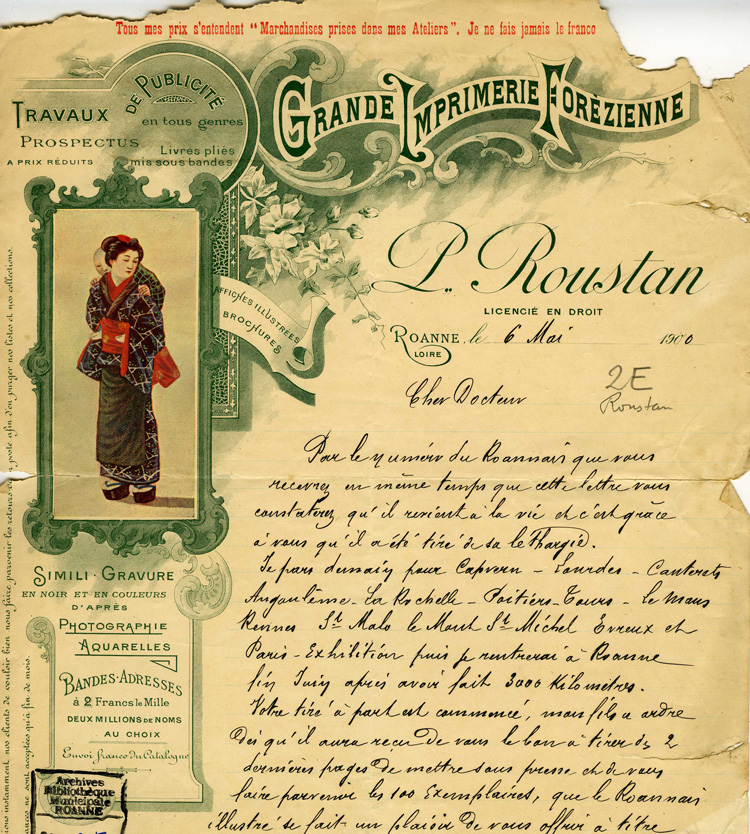 Tous mes prix s'entendent "Marchandises prises dans mes Ateliers". Je ne fais jamais le franco
GRANDE IMPRIMERIE FORÉZIENNE
TRAVAUX
DE PUBLICITÉ
en tous genres
PROSPECTUS
A PRIX RÉDUITS
Livres pliés
mis sous bandes
AFFICHES ILLUSTRÉES
BROCHURES
P. Roustan
LICENCIÉ EN DROIT
ROANNE, le 6 Mai 1900
LOIRE
2E
Roustan
Cher Docteur
Par le numéro du Roannais que vous
recevrez en même temps que cette lettre vous
constaterez qu'il revient à la vie et c'est grâce
à vous qu'il a été tiré de sa lethargie.
Je pars demain pour Capvern - Lourdes - Cauterets
Angoulême - La Rochelle - Poitiers - Tours - Le Mans
Rennes St Malo le Mont St Michel Evreux et
Paris - Exhibition puis je rentrerai à Roanne
fin Juin après avoir fait 3000 Kilometres.
Votre tiré à part est commencé, mon fils a ordre
dès qu'il aura recu de vous le bon à tirer des 2
dernières pages de mettre sous presse et de vous
faire parvenir les 100 Exemplaires, que le Roannais
illustré se fait un plaisir de vous offrir à titre
SIMILI-GRAVURE
EN NOIR ET EN COULEURS
D'APRÈS
PHOTOGRAPHIE
AQUARELLES
BANDES-ADRESSES
à 2 Francs le Mille
DEUX MILLIONS DE NOMS
AU CHOIX
Envoi franco du Catalogue
instamment, nos clients de vouloir bien nous faire parvenir les retours en poste afin d'en purger nos listes et nos collections.
ne sont acceptées qu'à fin de mois.
Archives
Bibliothèque
Municipale
ROANNE